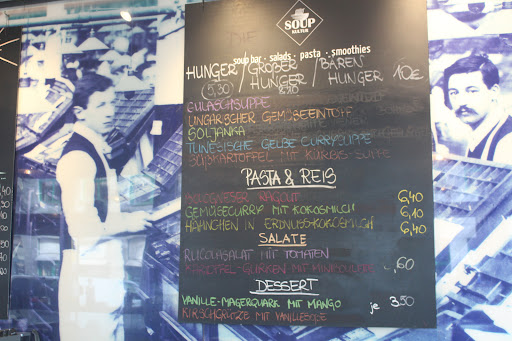 SOUP
KULTUR
soup bar · salads · pasta · smoothies
HUNGER / GROßER / BÄREN
HUNGER HUNGER 10€
5,30
GULASCHSUPPE
UNGARISCHER GEMÜSEEINTOPF
SOLJANKA
TUNESISCHE GELBE CURRYSUPPE
SÜßKARTOFFEL MIT KÜRBIS-SUPPE
PASTA & REIS
BOLOGNESER RAGOUT 6,40
GEMÜSECURRY MIT KOKOSMILCH 6,10
HÄHNCHEN IN ERDNUSS-KOKOSMILCH 6,40
SALATE
RUCOLASALAT MIT TOMATEN
KARTOFFEL-GURKEN MIT ,60
DESSERT
VANILLE-MAGERQUARK MIT MANGO je 3,50
KIRSCHGRÜTZE MIT VANILLESOßE